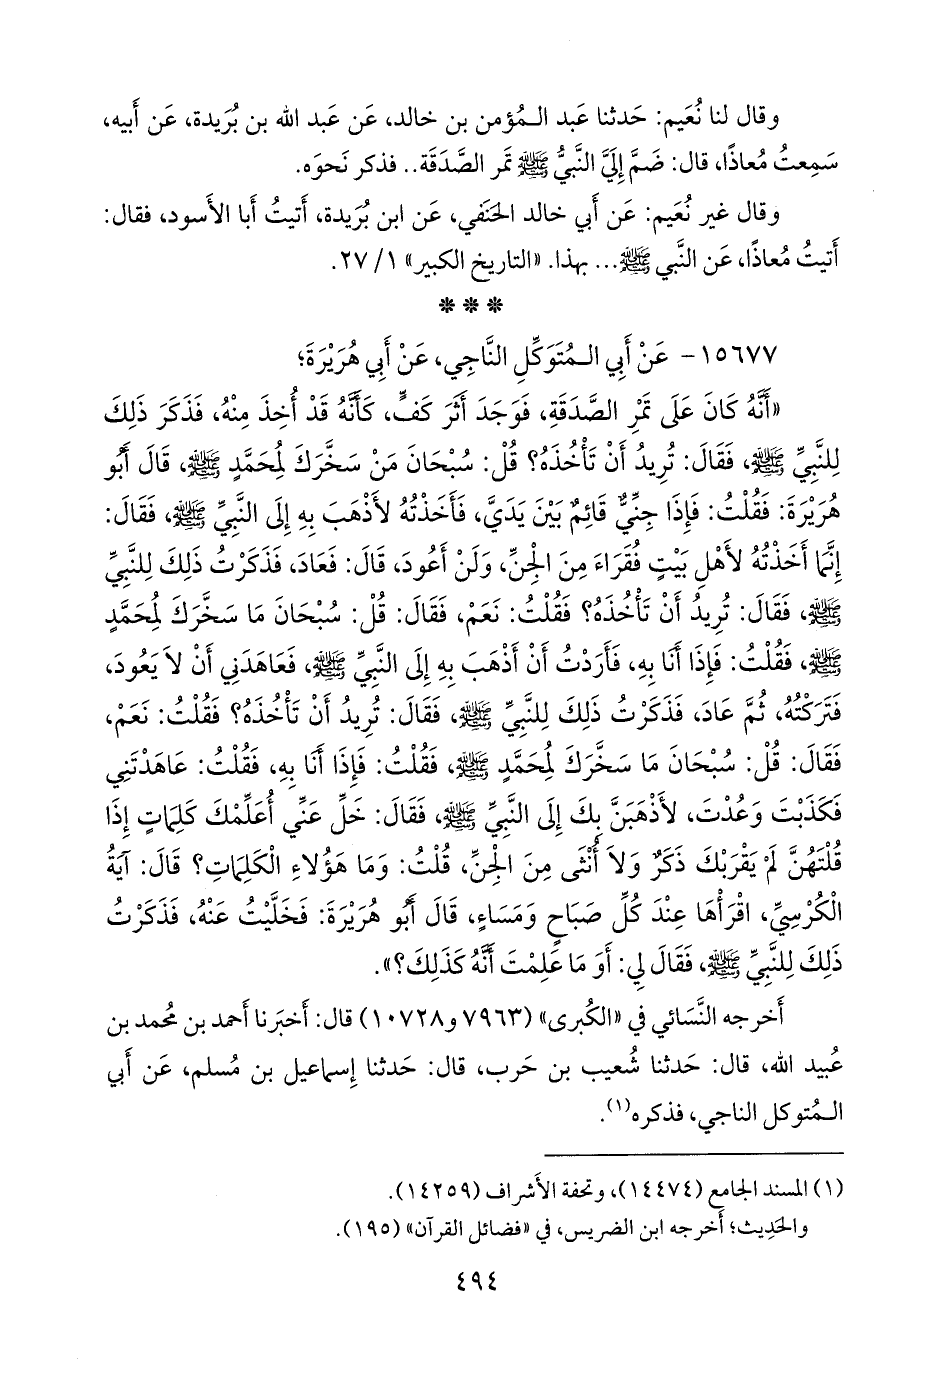 وقال لنا نُعَيم: حَدثنا عَبد الـمُؤمن بن خالد، عَن عَبد الله بن بُرَيدة، عَن أَبيه،
سَمِعتُ مُعاذًا، قال: ضَمَّ إِلَيَّ النَّبيُّ ﷺ تَمر الصَّدَقَة.. فذكر نَحوَه.
وقال غير نُعَيم: عَن أَبي خالد الحَنَفي، عَن ابن بُرَيدة، أَتيتُ أَبا الأَسود، فقال:
أَتيتُ مُعاذًا، عَن النَّبي ﷺ... بهذا. «التاريخ الكبير» ١/ ٢٧.
* * *
١٥٦٧٧- عَنْ أَبِي الـمُتَوَكِّلِ النَّاجِي، عَنْ أَبِي هُرَيْرَةَ؛
«أَنَّهُ كَانَ عَلَى تَمْرِ الصَّدَقَةِ، فَوَجَدَ أَثَرَ كَفٍّ، كَأَنَّهُ قَدْ أُخِذَ مِنْهُ، فَذَكَرَ ذَلِكَ
لِلنَّبِيِّ ﷺ، فَقَالَ: تُرِيدُ أَنْ تَأْخُذَهُ؟ قُلْ: سُبْحَانَ مَنْ سَخَّرَكَ لِمُحَمَّدٍ ﷺ، قَالَ أَبُو
هُرَيْرَةَ: فَقُلْتُ: فَإِذَا جِنِّيٌّ قَائِمٌ بَيْنَ يَدَيَّ، فَأَخَذْتُهُ لأَذْهَبَ بِهِ إِلَى النَّبِيِّ ﷺ، فَقَالَ:
إِنَّمَا أَخَذْتُهُ لأَهْلِ بَيْتٍ فُقَرَاءَ مِنَ الْجِنِّ، وَلَنْ أَعُودَ، قَالَ: فَعَادَ، فَذَكَرْتُ ذَلِكَ لِلنَّبِيِّ
ﷺ، فَقَالَ: تُرِيدُ أَنْ تَأْخُذَهُ؟ فَقُلْتُ: نَعَمْ، فَقَالَ: قُلْ: سُبْحَانَ مَا سَخَّرَكَ لِمُحَمَّدٍ
ﷺ، فَقُلْتُ: فَإِذَا أَنَا بِهِ، فَأَرَدْتُ أَنْ أَذْهَبَ بِهِ إِلَى النَّبِيِّ ﷺ، فَعَاهَدَنِي أَنْ لاَ يَعُودَ،
فَتَرَكْتُهُ، ثُمَّ عَادَ، فَذَكَرْتُ ذَلِكَ لِلنَّبِيِّ ﷺ، فَقَالَ: تُرِيدُ أَنْ تَأْخُذَهُ؟ فَقُلْتُ: نَعَمْ،
فَقَالَ: قُلْ: سُبْحَانَ مَا سَخَّرَكَ لِمُحَمَّدٍ ﷺ، فَقُلْتُ: فَإِذَا أَنَا بِهِ، فَقُلْتُ: عَاهَدْتَنِي
فَكَذَبْتَ وَعُدْتَ، لأَذْهَبَنَّ بِكَ إِلَى النَّبِيِّ ﷺ، فَقَالَ: خَلِّ عَنِّي أُعَلِّمْكَ كَلِمَاتٍ إِذَا
قُلْتَهُنَّ لَمْ يَقْرَبْكَ ذَكَرٌ وَلاَ أُنْثَى مِنَ الْجِنِّ، قُلْتُ: وَمَا هَؤُلاَءِ الْكَلِمَاتِ؟ قَالَ: آيَةُ
الْكُرْسِيِّ، اقْرَأْهَا عِنْدَ كُلِّ صَبَاحٍ وَمَسَاءٍ، قَالَ أَبُو هُرَيْرَةَ: فَخَلَّيْتُ عَنْهُ، فَذَكَرْتُ
ذَلِكَ لِلنَّبِيِّ ﷺ، فَقَالَ لِي: أَوَ مَا عَلِمْتَ أَنَّهُ كَذَلِكَ؟».
أَخرجه النَّسَائي في «الكُبرى» (٧٩٦٣ و١٠٧٢٨) قال: أَخبَرنا أَحمد بن مُحمد بن
عُبيد الله، قال: حَدثنا شُعيب بن حَرب، قال: حَدثنا إِسماعيل بن مُسلم، عَن أَبي
الـمُتوكل الناجي، فذكره(١).
(١) المسند الجامع (١٤٤٧٤)، وتحفة الأَشراف (١٤٢٥٩).
والحَدِيث؛ أَخرجه ابن الضريس، في «فضائل القرآن» (١٩٥).
٤٩٤